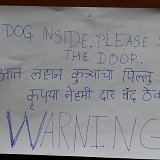 DOG INSIDE. PLEASE
THE DOOR.
आत लहान कुत्र्याचा पिल्लू
कृपया नेहमी दार बंद ठेव
WARNING